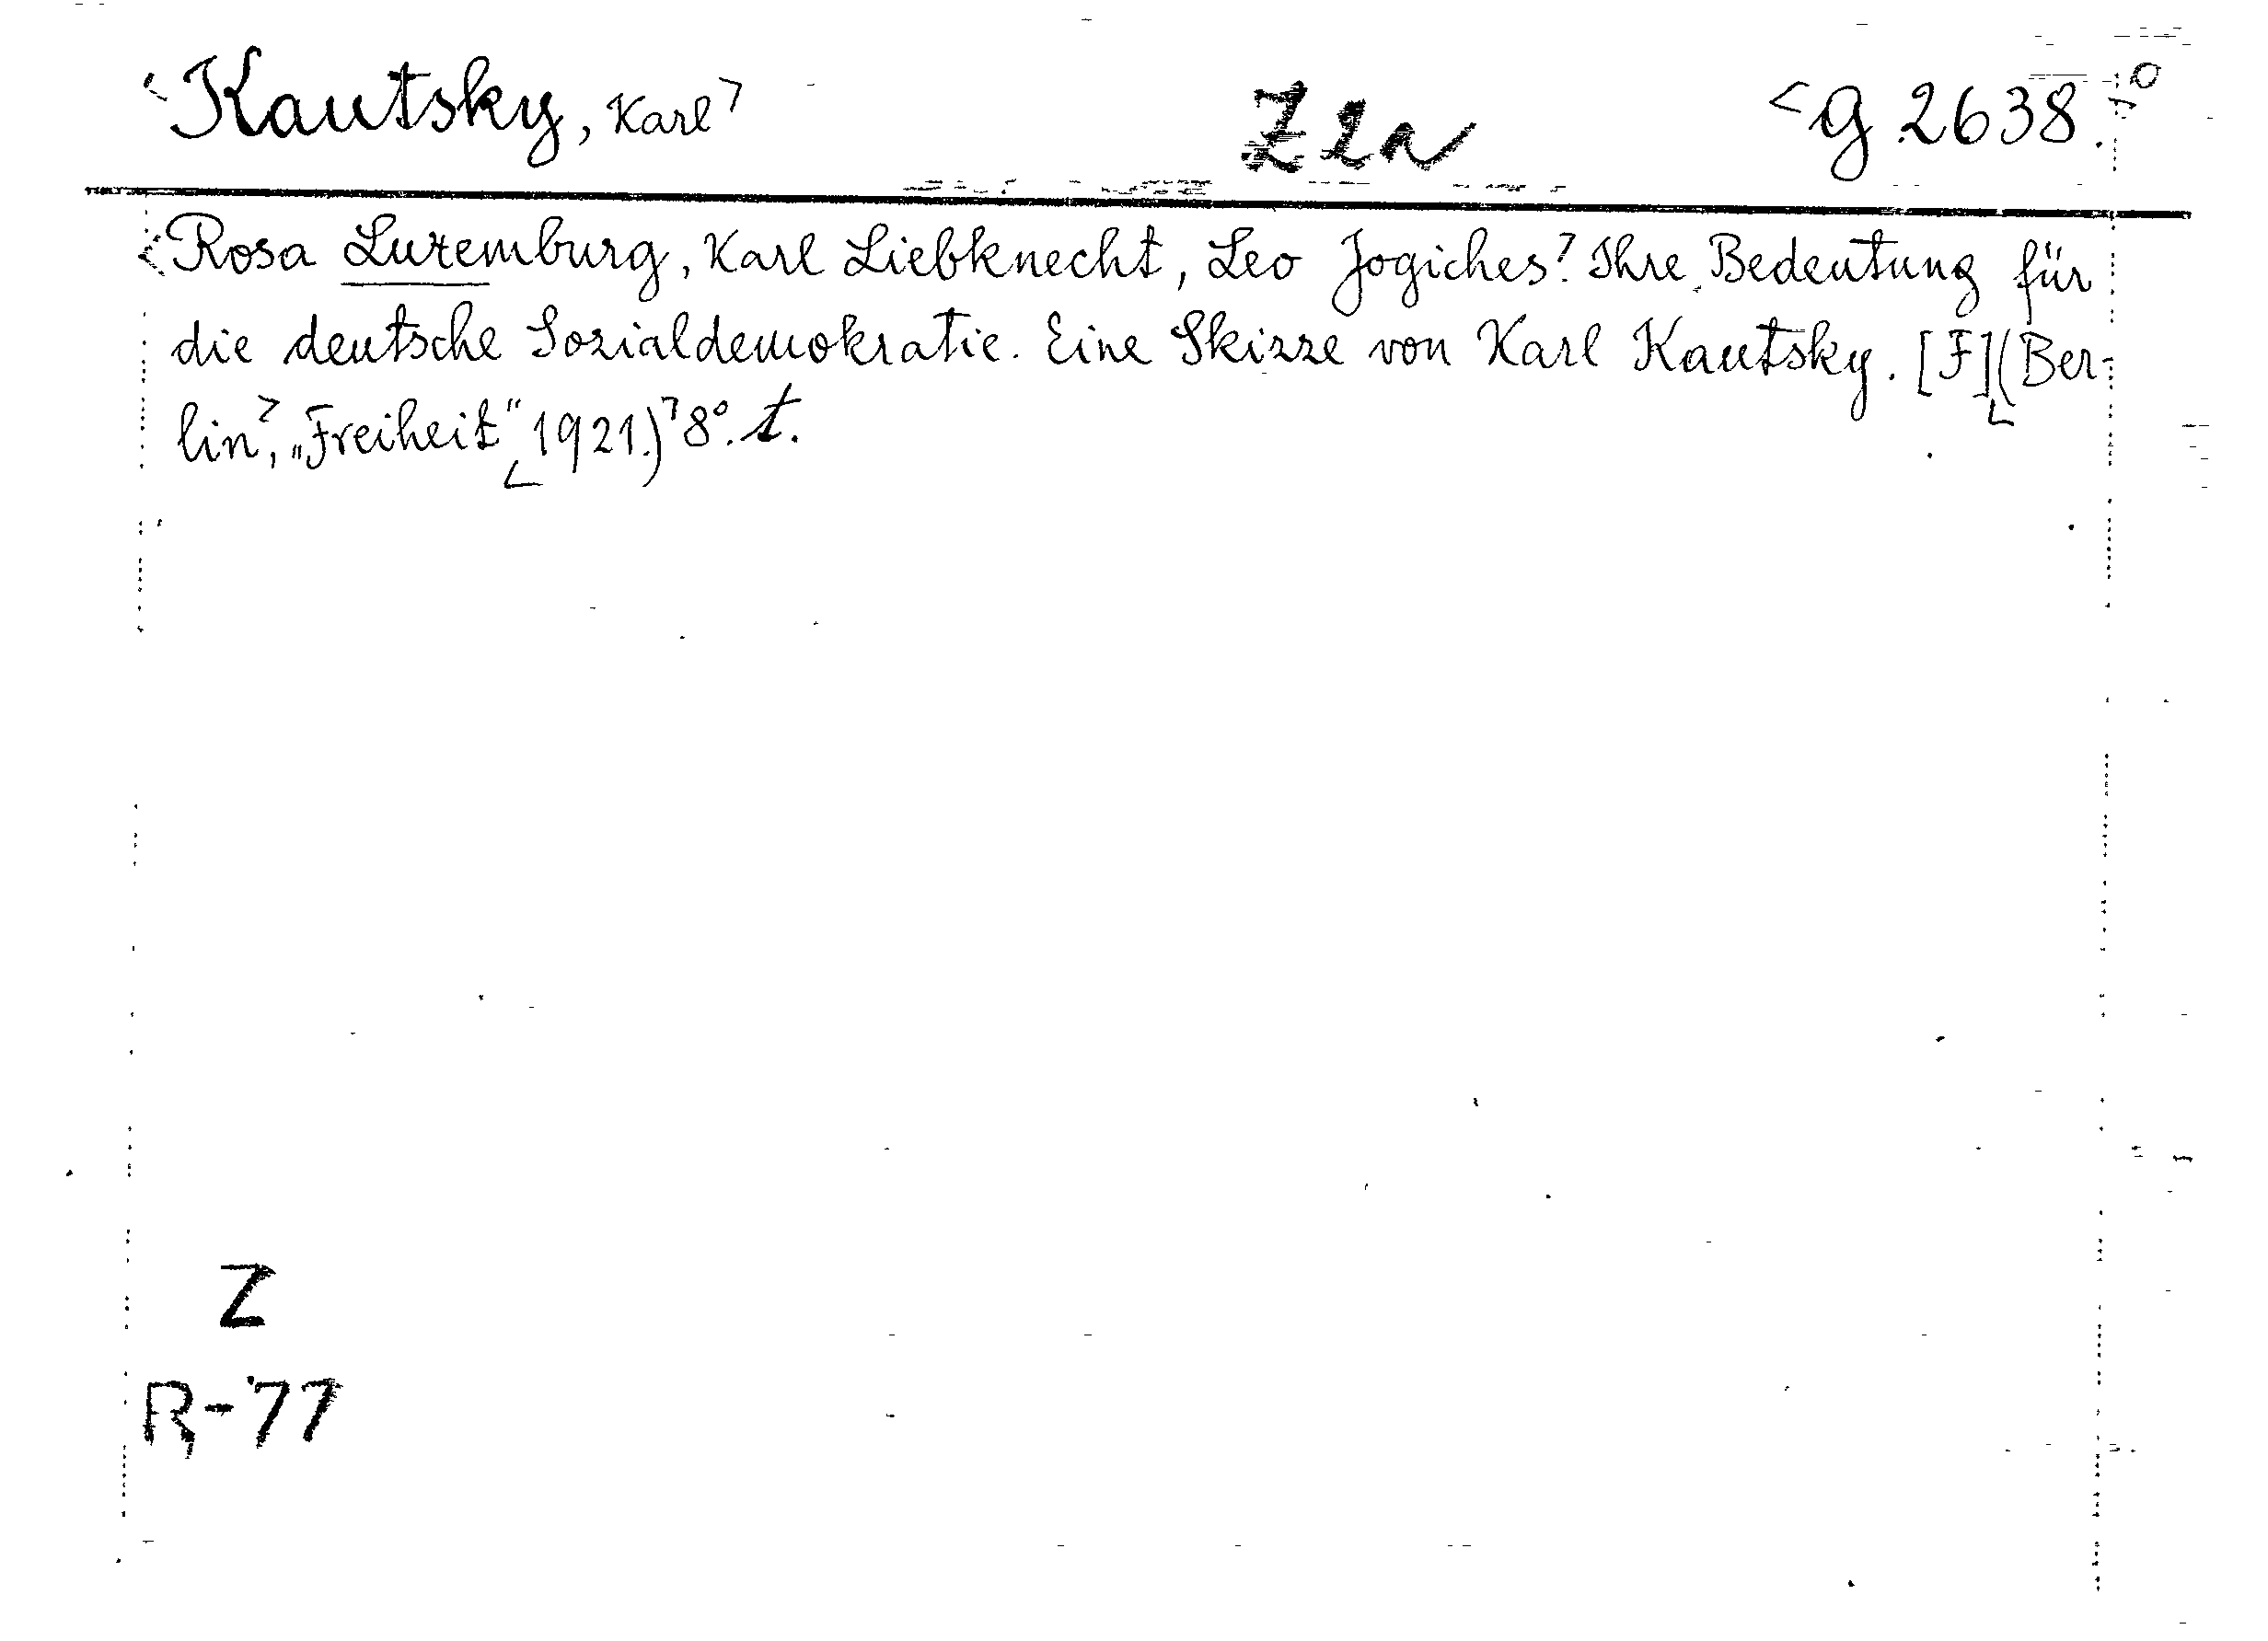 <Kautsky, Karl> Z 2a <g 2638.
<Rosa Luxemburg, Karl Liebknecht, Leo Jogiches? Ihre Bedeutung für
die deutsche Sozialdemokratie. Eine Skizze von Karl Kautsky. [F] <(Ber-
lin>, „Freiheit“ <1921.)> 8°. t.
Z
R-77